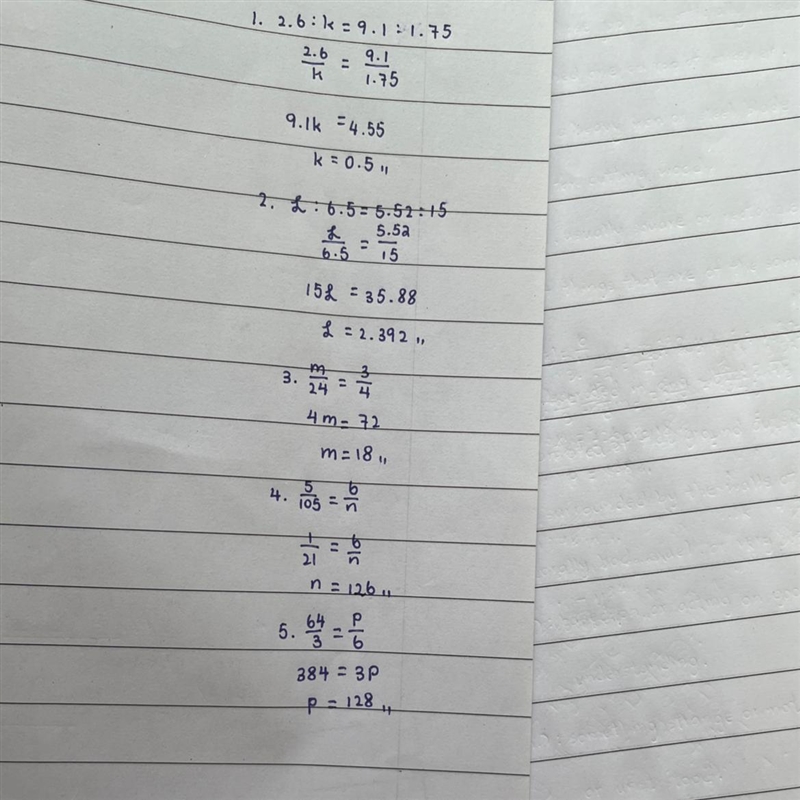 1. 2.6 : k = 9.1 : 1.75
2.6/k = 9.1/1.75
9.1k = 4.55
k = 0.5 ,,
2. L : 6.5 = 5.52 : 15
L/6.5 = 5.52/15
15L = 35.88
L = 2.392 ,,
3. m/24 = 3/4
4m = 72
m = 18 ,,
4. 5/105 = 6/n
1/21 = 6/n
n = 126 ,,
5. 64/3 = p/6
384 = 3p
p = 128 ,,